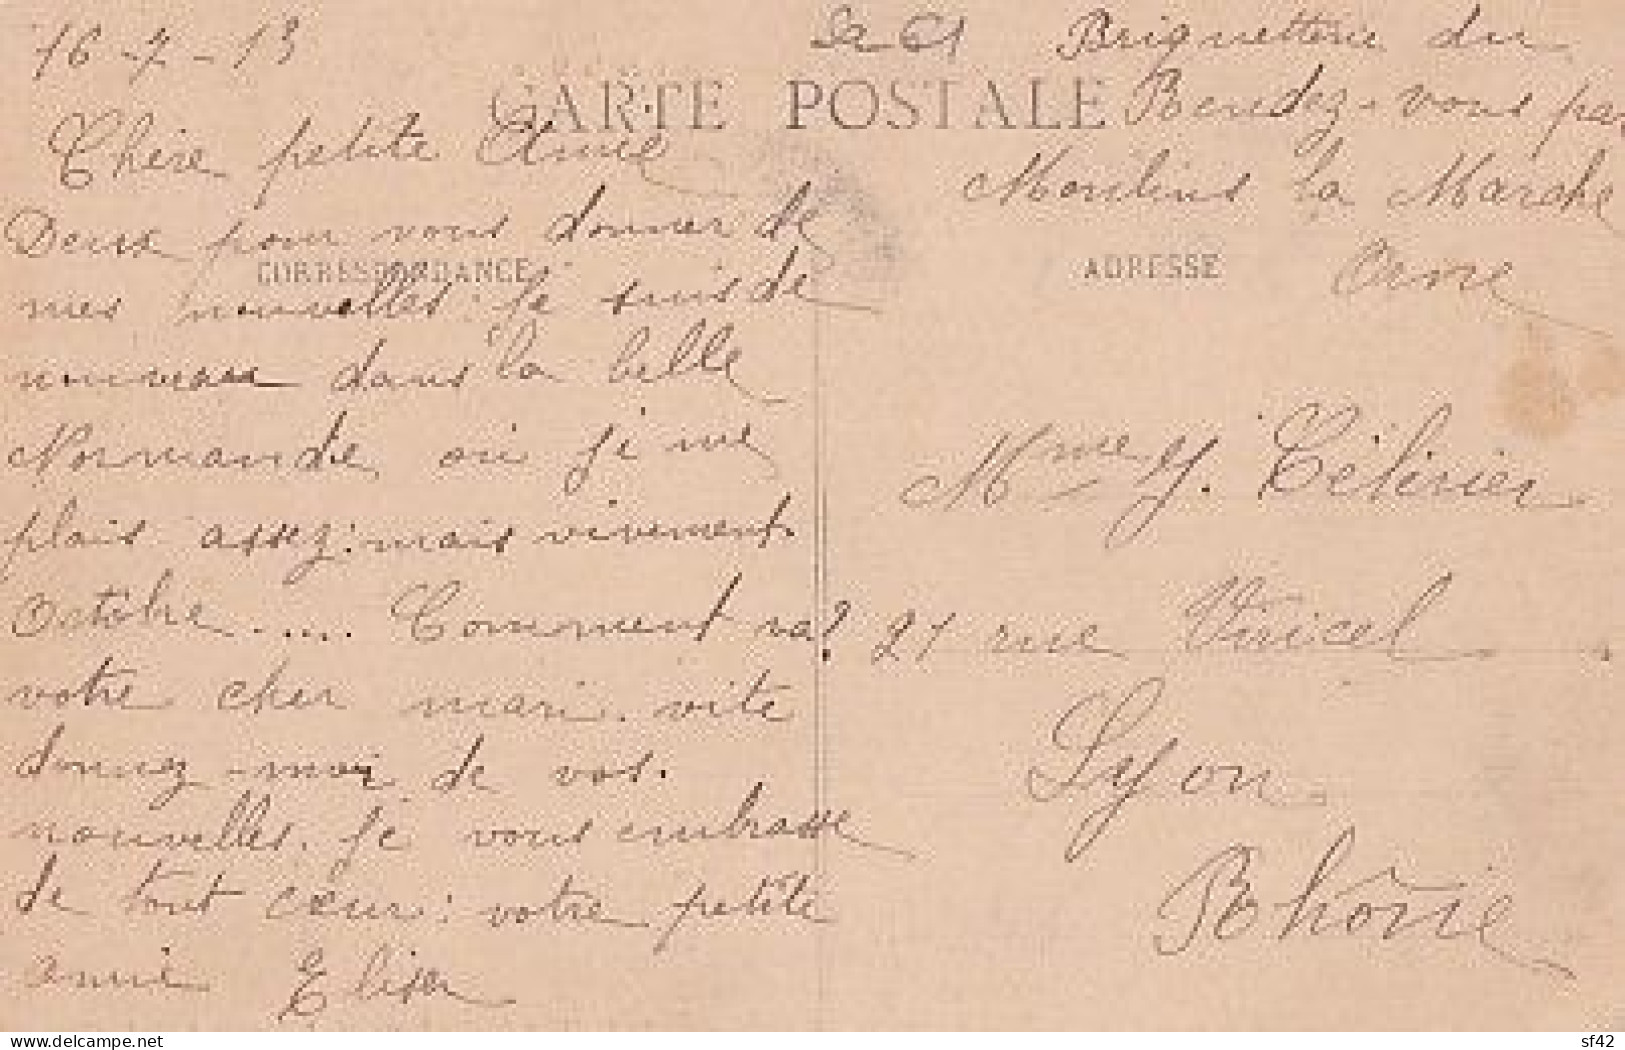 16-7-13
Chère petite Amie
Deux pour vous donner de
mes nouvelles: je suis de
nouveau dans la belle
Normandie où je me
plais assez: mais vivement
Octobre..... Comment va?
votre cher mari. vite
donnez-moi de vos.
nouvelles. je vous embrasse
de tout cœur: votre petite
amie Elisa
CARTE POSTALE
CORRESPONDANCE
ADRESSE
Briquetterie du
Rendez-vous par
Moulins la Marche
Orne
Mme Y.
21 rue
Lyon
Rhône
delcampe.net
sf42